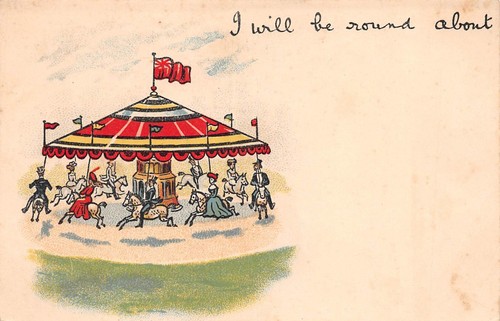 I will be round about